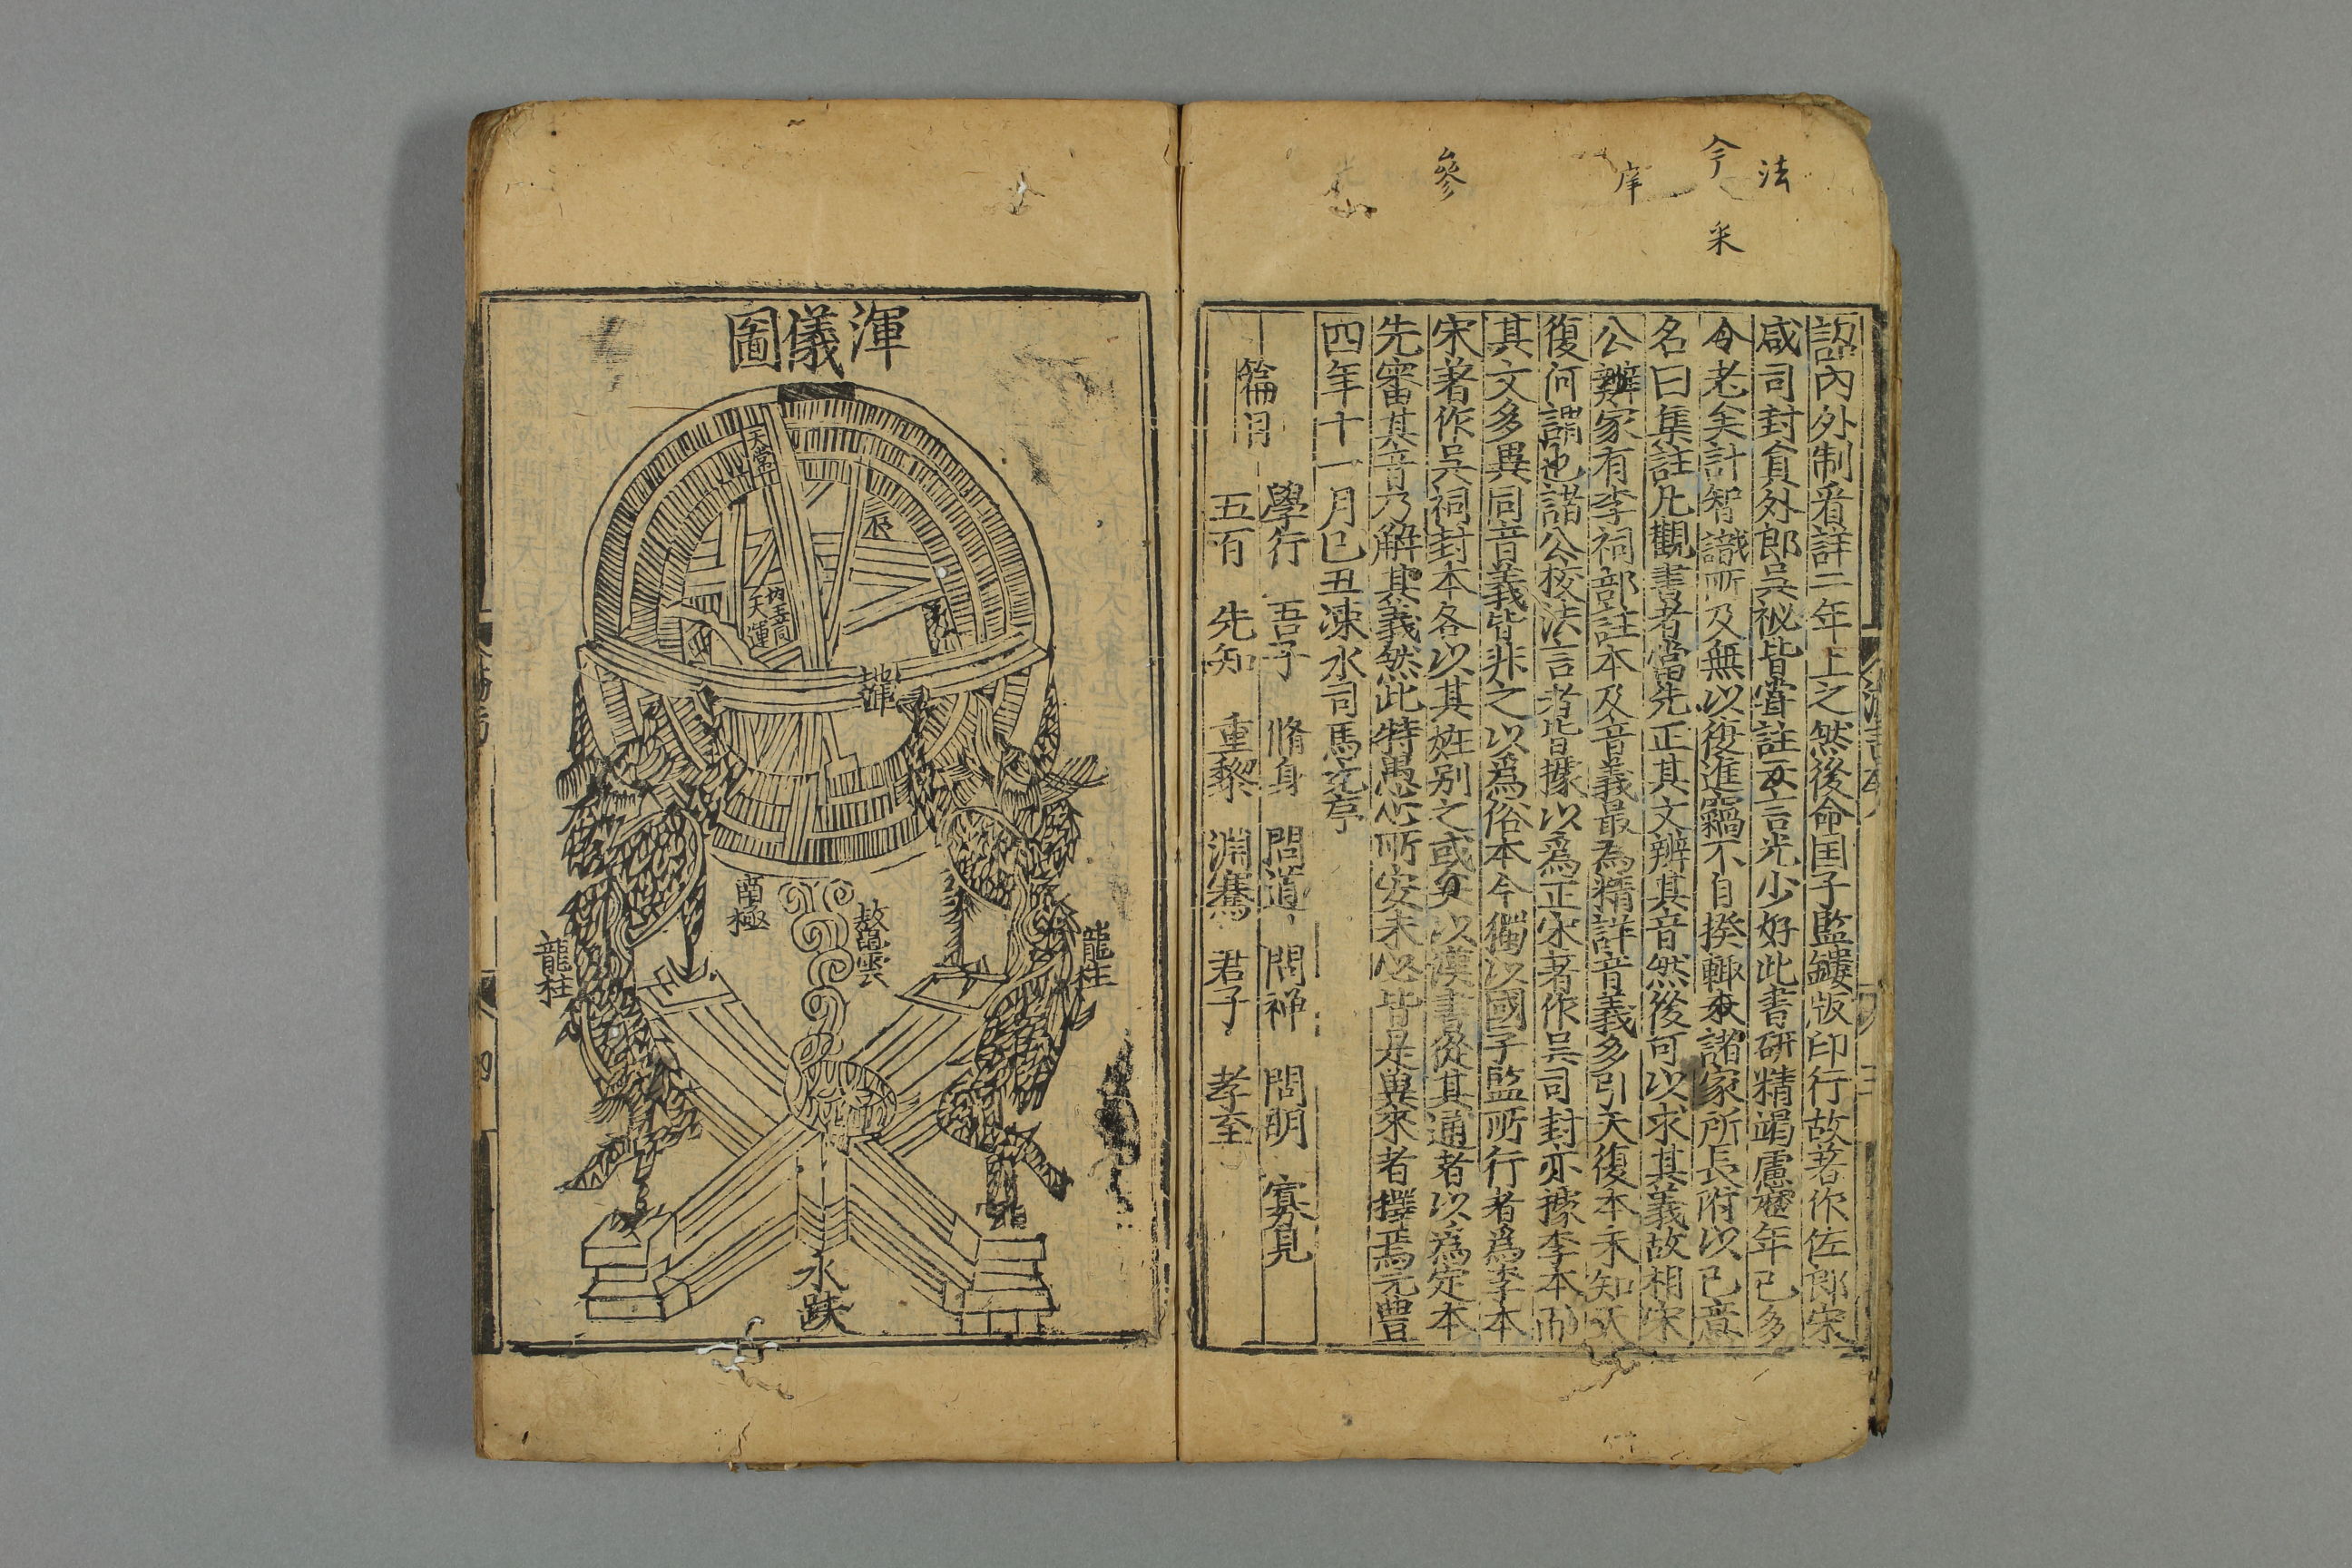 法
今
采
庠
參
詔內外制看詳二年上之然後命国子監鏤版印行故著作佐郎宋
咸司封貟外郎吳祕皆甞註法言光少好此書研精竭慮歷年已多
今老矣計智識所及無以復進竊不自揆輙采諸家所長附以已意
名曰集註凡觀書者當先正其文辨其音然後可以求其義故相宋
公庠家有李祠部註本及音義最為精詳音義多引天復本未知天
復何謂也諸公校法言者皆據以為正宋著作吳司封亦據李本而
其文多異同音義皆非之以爲俗本今獨以國子監所行者爲李本
宋著作吳祠封本各以其姓別之或参以漢書從其通者以爲定本
先審其音乃解其義然此特愚心所安未必皆是與來者擇焉元豊
四年十一月己丑涑水司馬光序
篇目
學行 吾子 脩身 問道 問神 問明 寡見
五百 先知 重黎 淵騫 君子 孝至
渾儀圖
天常
辰
天運
地渾
南極
鼇雲
龍柱
龍柱
水趺
四